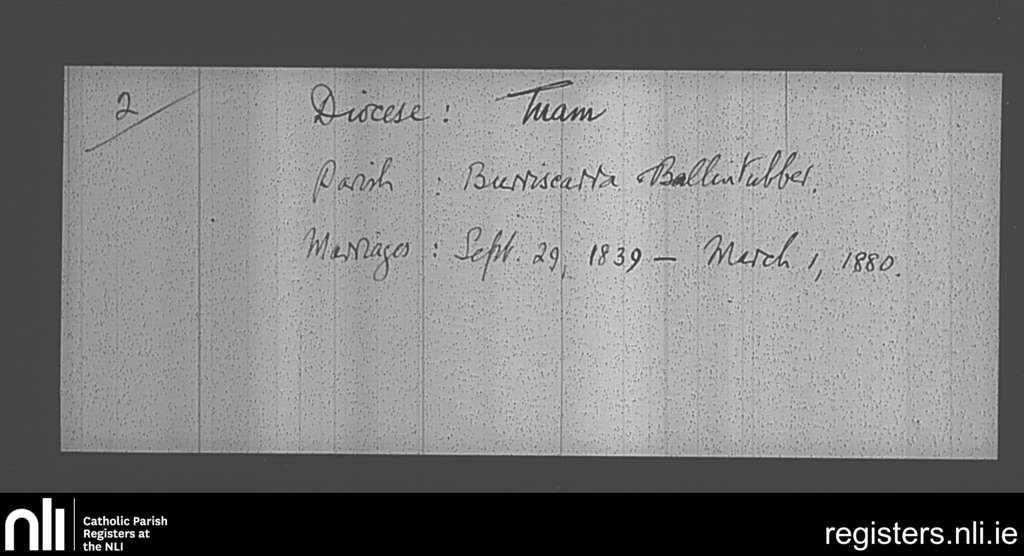 2
Diocese: Tuam
Parish : Burriscarra Ballintubber.
Marriages : Sept. 29, 1839 — March 1, 1880.
nli
Catholic Parish
Registers at
the NLI
registers.nli.ie